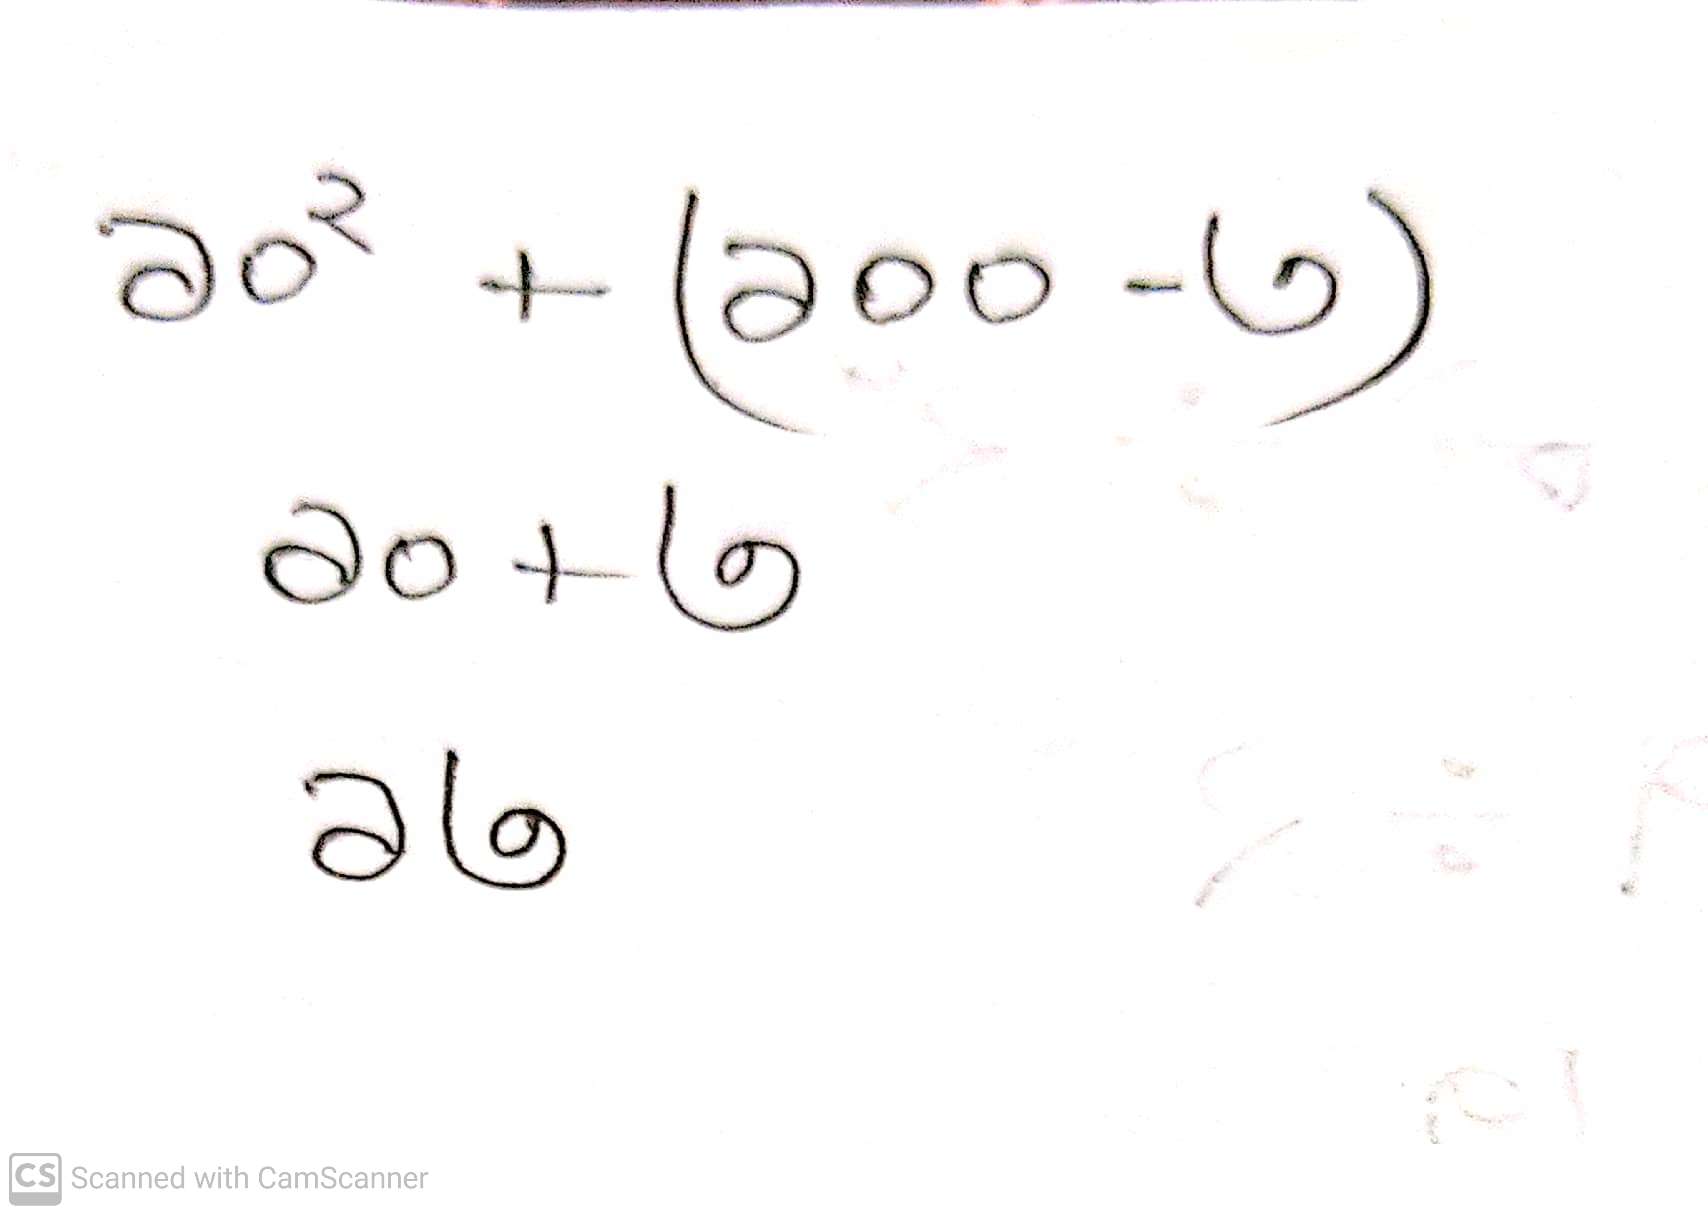 ১০² + (১০০ - ৬)
১০ + ৬
১৬
CS Scanned with CamScanner